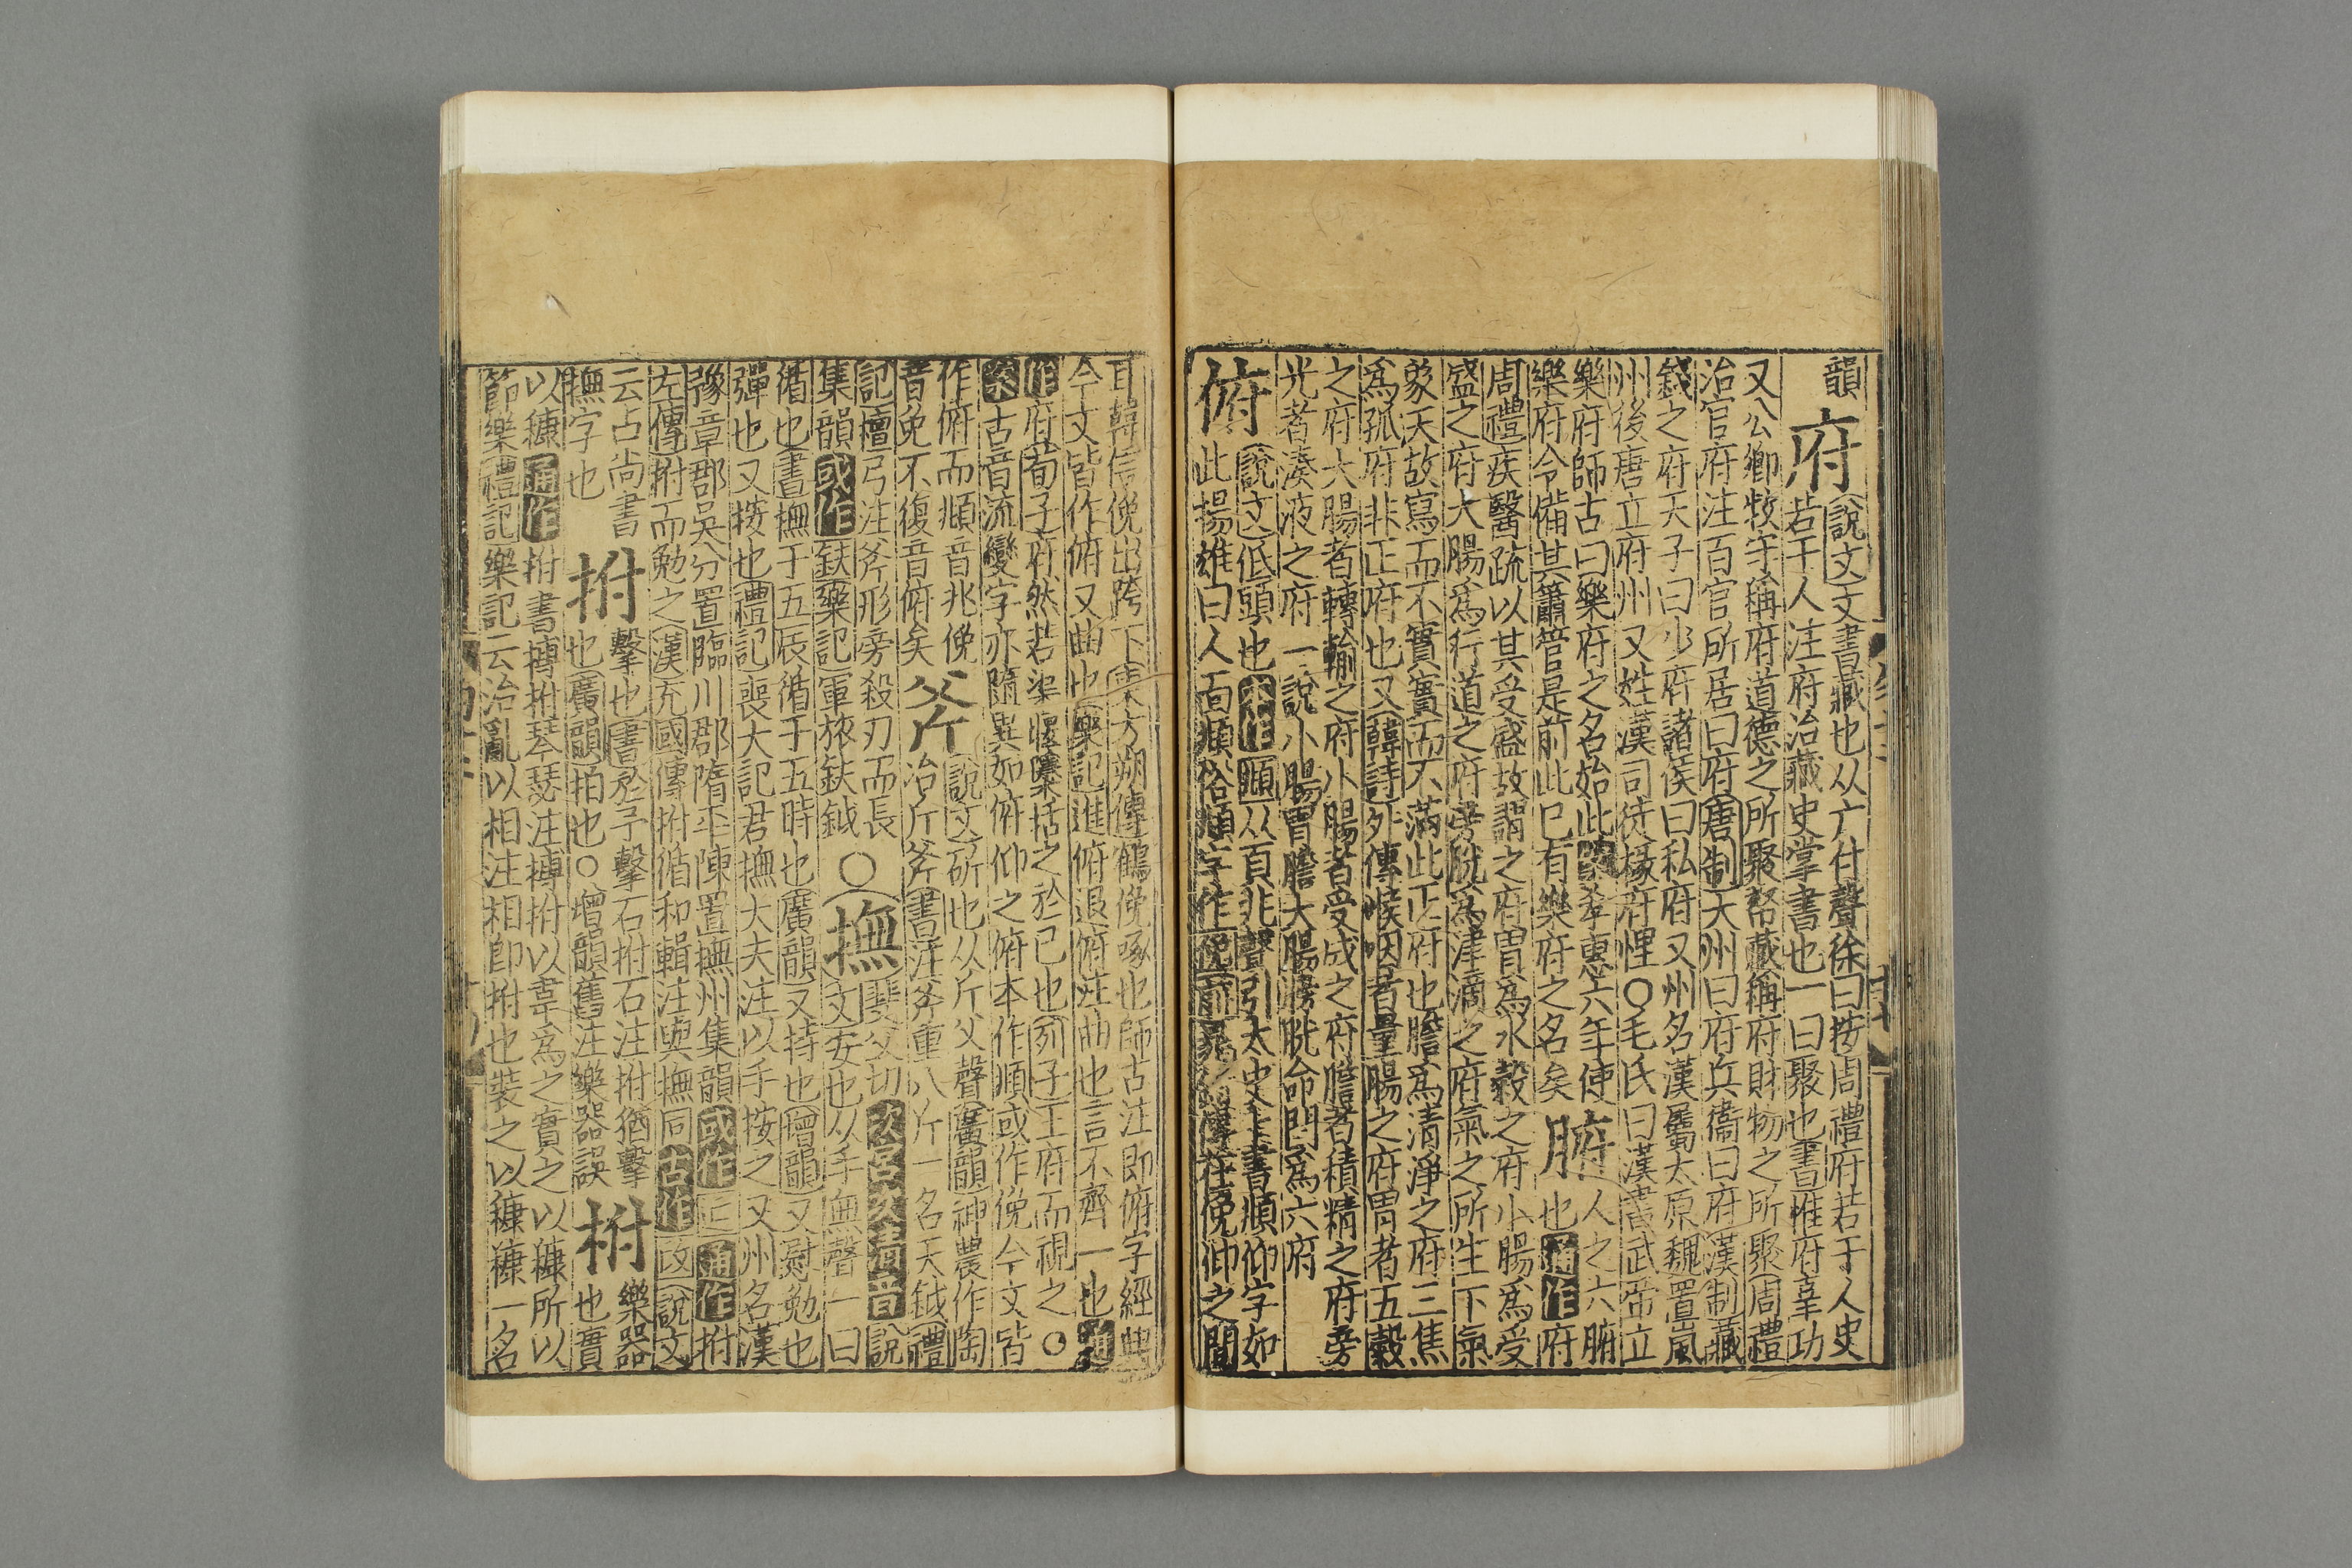 韻
府
說文文書藏也从广付聲徐曰按周禮府若干人史
若干人注府治藏史掌書也一曰聚也書惟府辜功
又公卿牧守稱府道德之所聚帑藏稱府財物之所聚周禮
治官府注百官所居曰府唐制大州曰府兵衞曰府漢制藏
錢之府天子曰少府諸侯曰私府又州名漢屬太原魏置嵐
州後唐立府州又姓漢司徒掾府悝○毛氏曰漢書武帝立
樂府師古曰樂府之名始此案孝惠六年使
樂府令備其簫管是前此已有樂府之名矣
腑
人之六腑
也通作府
周禮疾醫疏以其受盛故謂之府胃爲水穀之府小腸爲受
盛之府大腸爲行道之府旁胱爲津滴之府氣之所生下氣
象天故寫而不實實而不滿此正府也膽爲清淨之府三焦
爲孤府非正府也又韓詩外傳喉咽者量腸之府胃者五穀
之府大腸者轉輸之府小腸者受成之府膽者積精之府旁
光者湊液之府一說小腸胃膽大腸膀胱命門爲六府
俯
說文低頭也本作頫从頁兆聲引太史卜書頫仰字如
此揚雄曰人面頫俗頫字作俛前
俛仰之間
耳韓信俛出跨下東方朔傳鶴俛啄也師古注即俯字經典
今文皆作俯又曲也樂記進俯退俯注曲也言不齊一也通
作府荀子府然若渠匽檃栝之於已也列子王府而視之○
案古音流變字亦隨異如俯仰之俯本作頫或作俛今文皆
作俯而頫音兆俛
音免不復音俯矣
斧
說文斫也从斤父聲廣韻神農作陶
冶斤斧書注斧重八斤一名天鉞禮
記檀弓注斧形旁殺刃而長
集韻或作鈇樂記軍旅鈇鉞
○
撫
斐父切次宮次清次音說
文安也从手無聲一曰
循也書撫于五辰循于五時也廣韻又持也增韻又慰勉也
彈也又按也禮記喪大記君撫大夫注以手按之又州名漢
豫章郡吳分置臨川郡隋平陳置撫州集韻或作
通作拊
左傳拊而勉之漢充國傳拊循和輯注與撫同古作㩉說文
云占尚書
撫字也
拊
擊也書於予擊石拊石注拊猶擊
也廣韻拍也○增韻舊注樂器誤
柎
樂器
也實
以穅通作拊書搏拊琴瑟注搏拊以韋爲之實之以穅所以
節樂禮記樂記云治亂以相注相即拊也裝之以穅穅一名